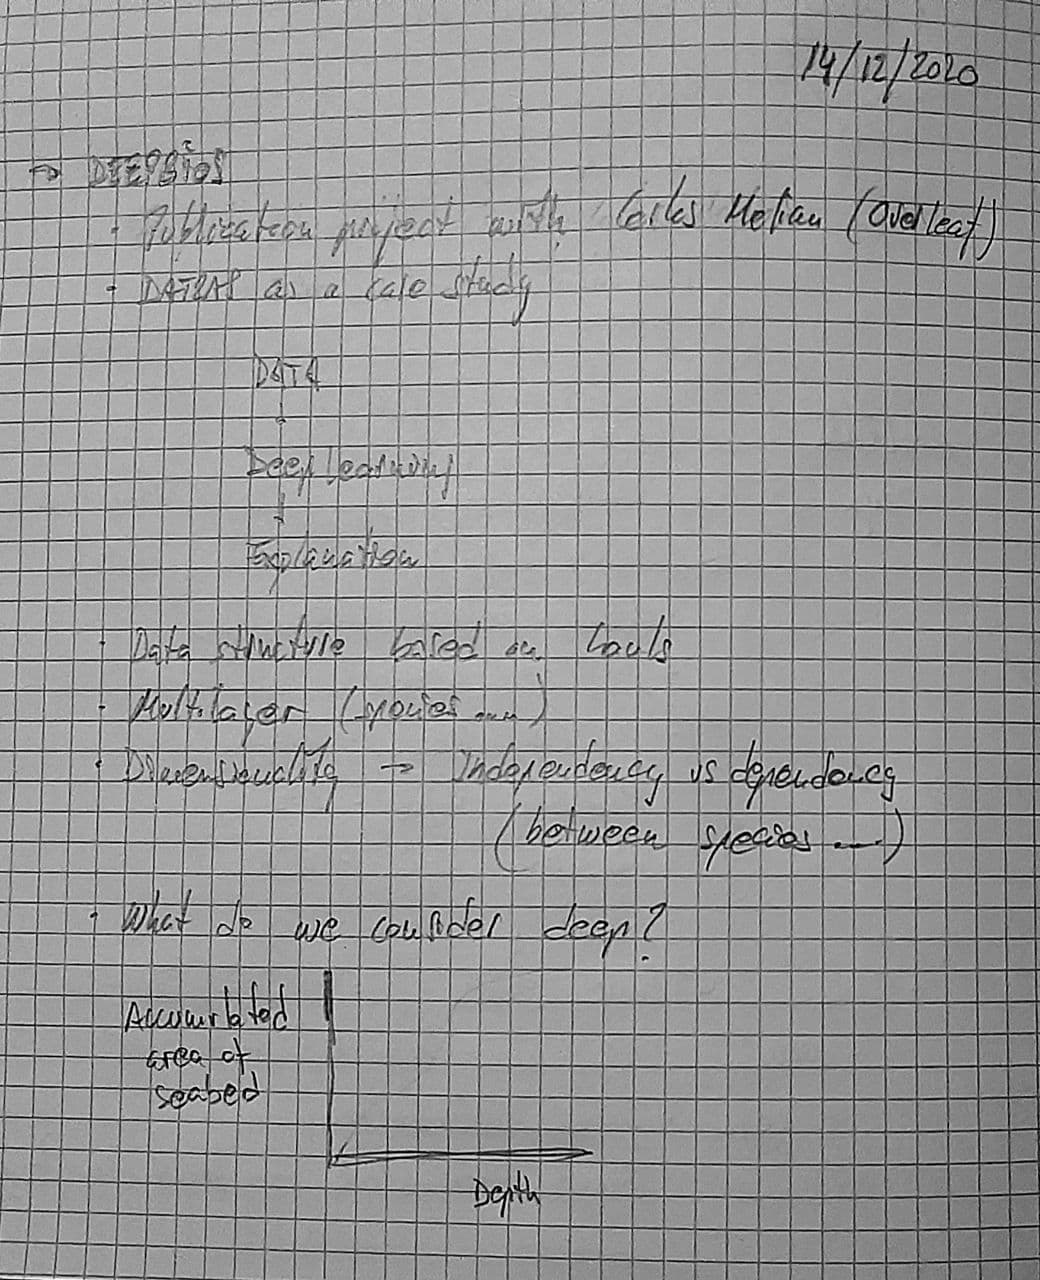 14/12/2020
→ DEEPBIOS
· Publication project with Carlos Melian (Overleaf)
· DATRAS as a case study
DATA
↓
Deep learning
↓
Explanation
· Data structure based on hauls
· Multilayer (species ....)
· Dimensionality → Independency vs dependency
(between species ....)
· What do we consider deep?
Accumulated
area of
seabed
Depth